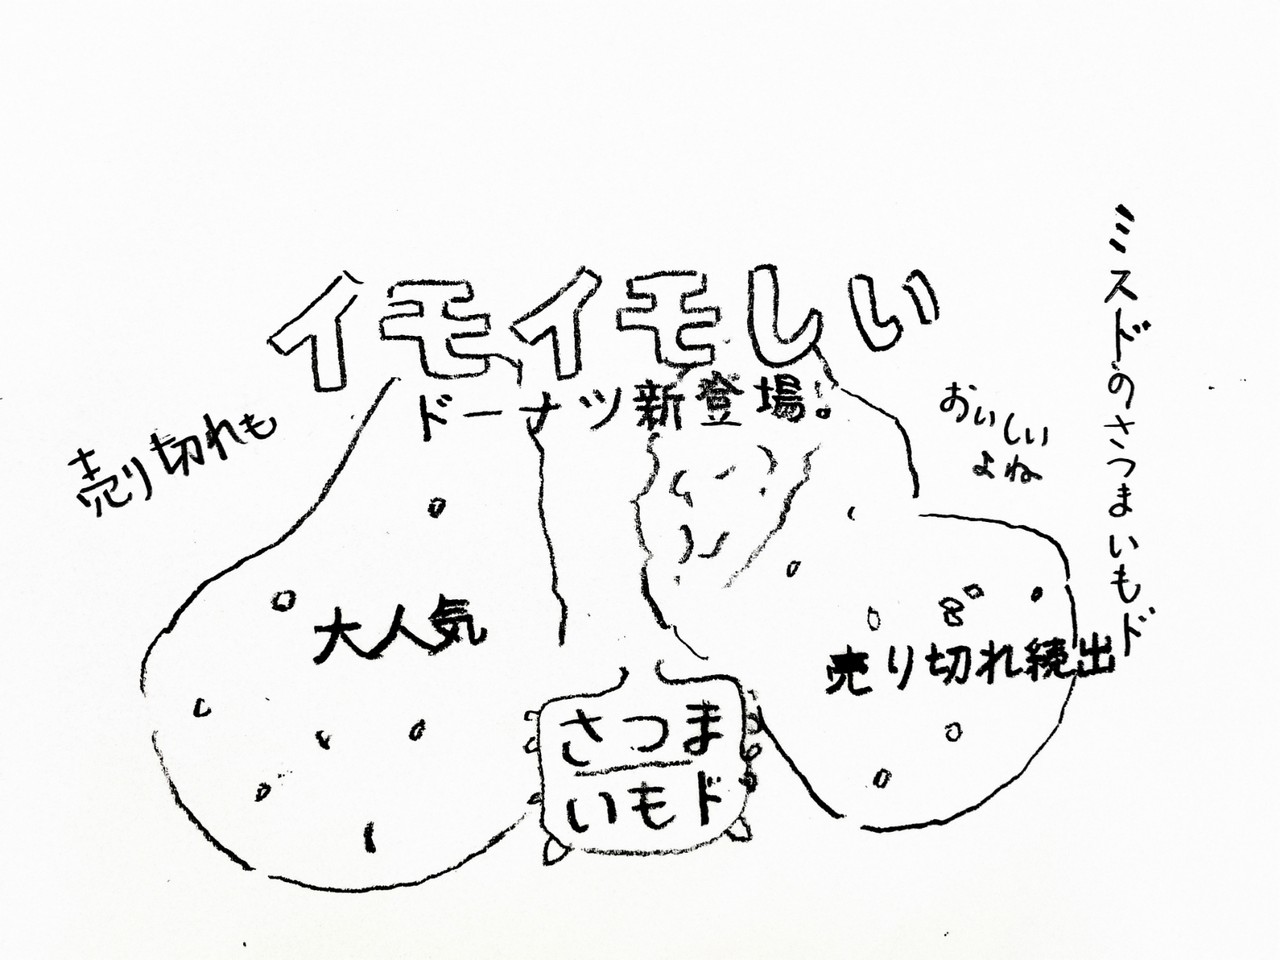 イモイモしい
ドーナツ新登場!
売り切れも
おいしい
よね
ミスドのさつまいもド
大人気
売り切れ続出
さつま
いもド